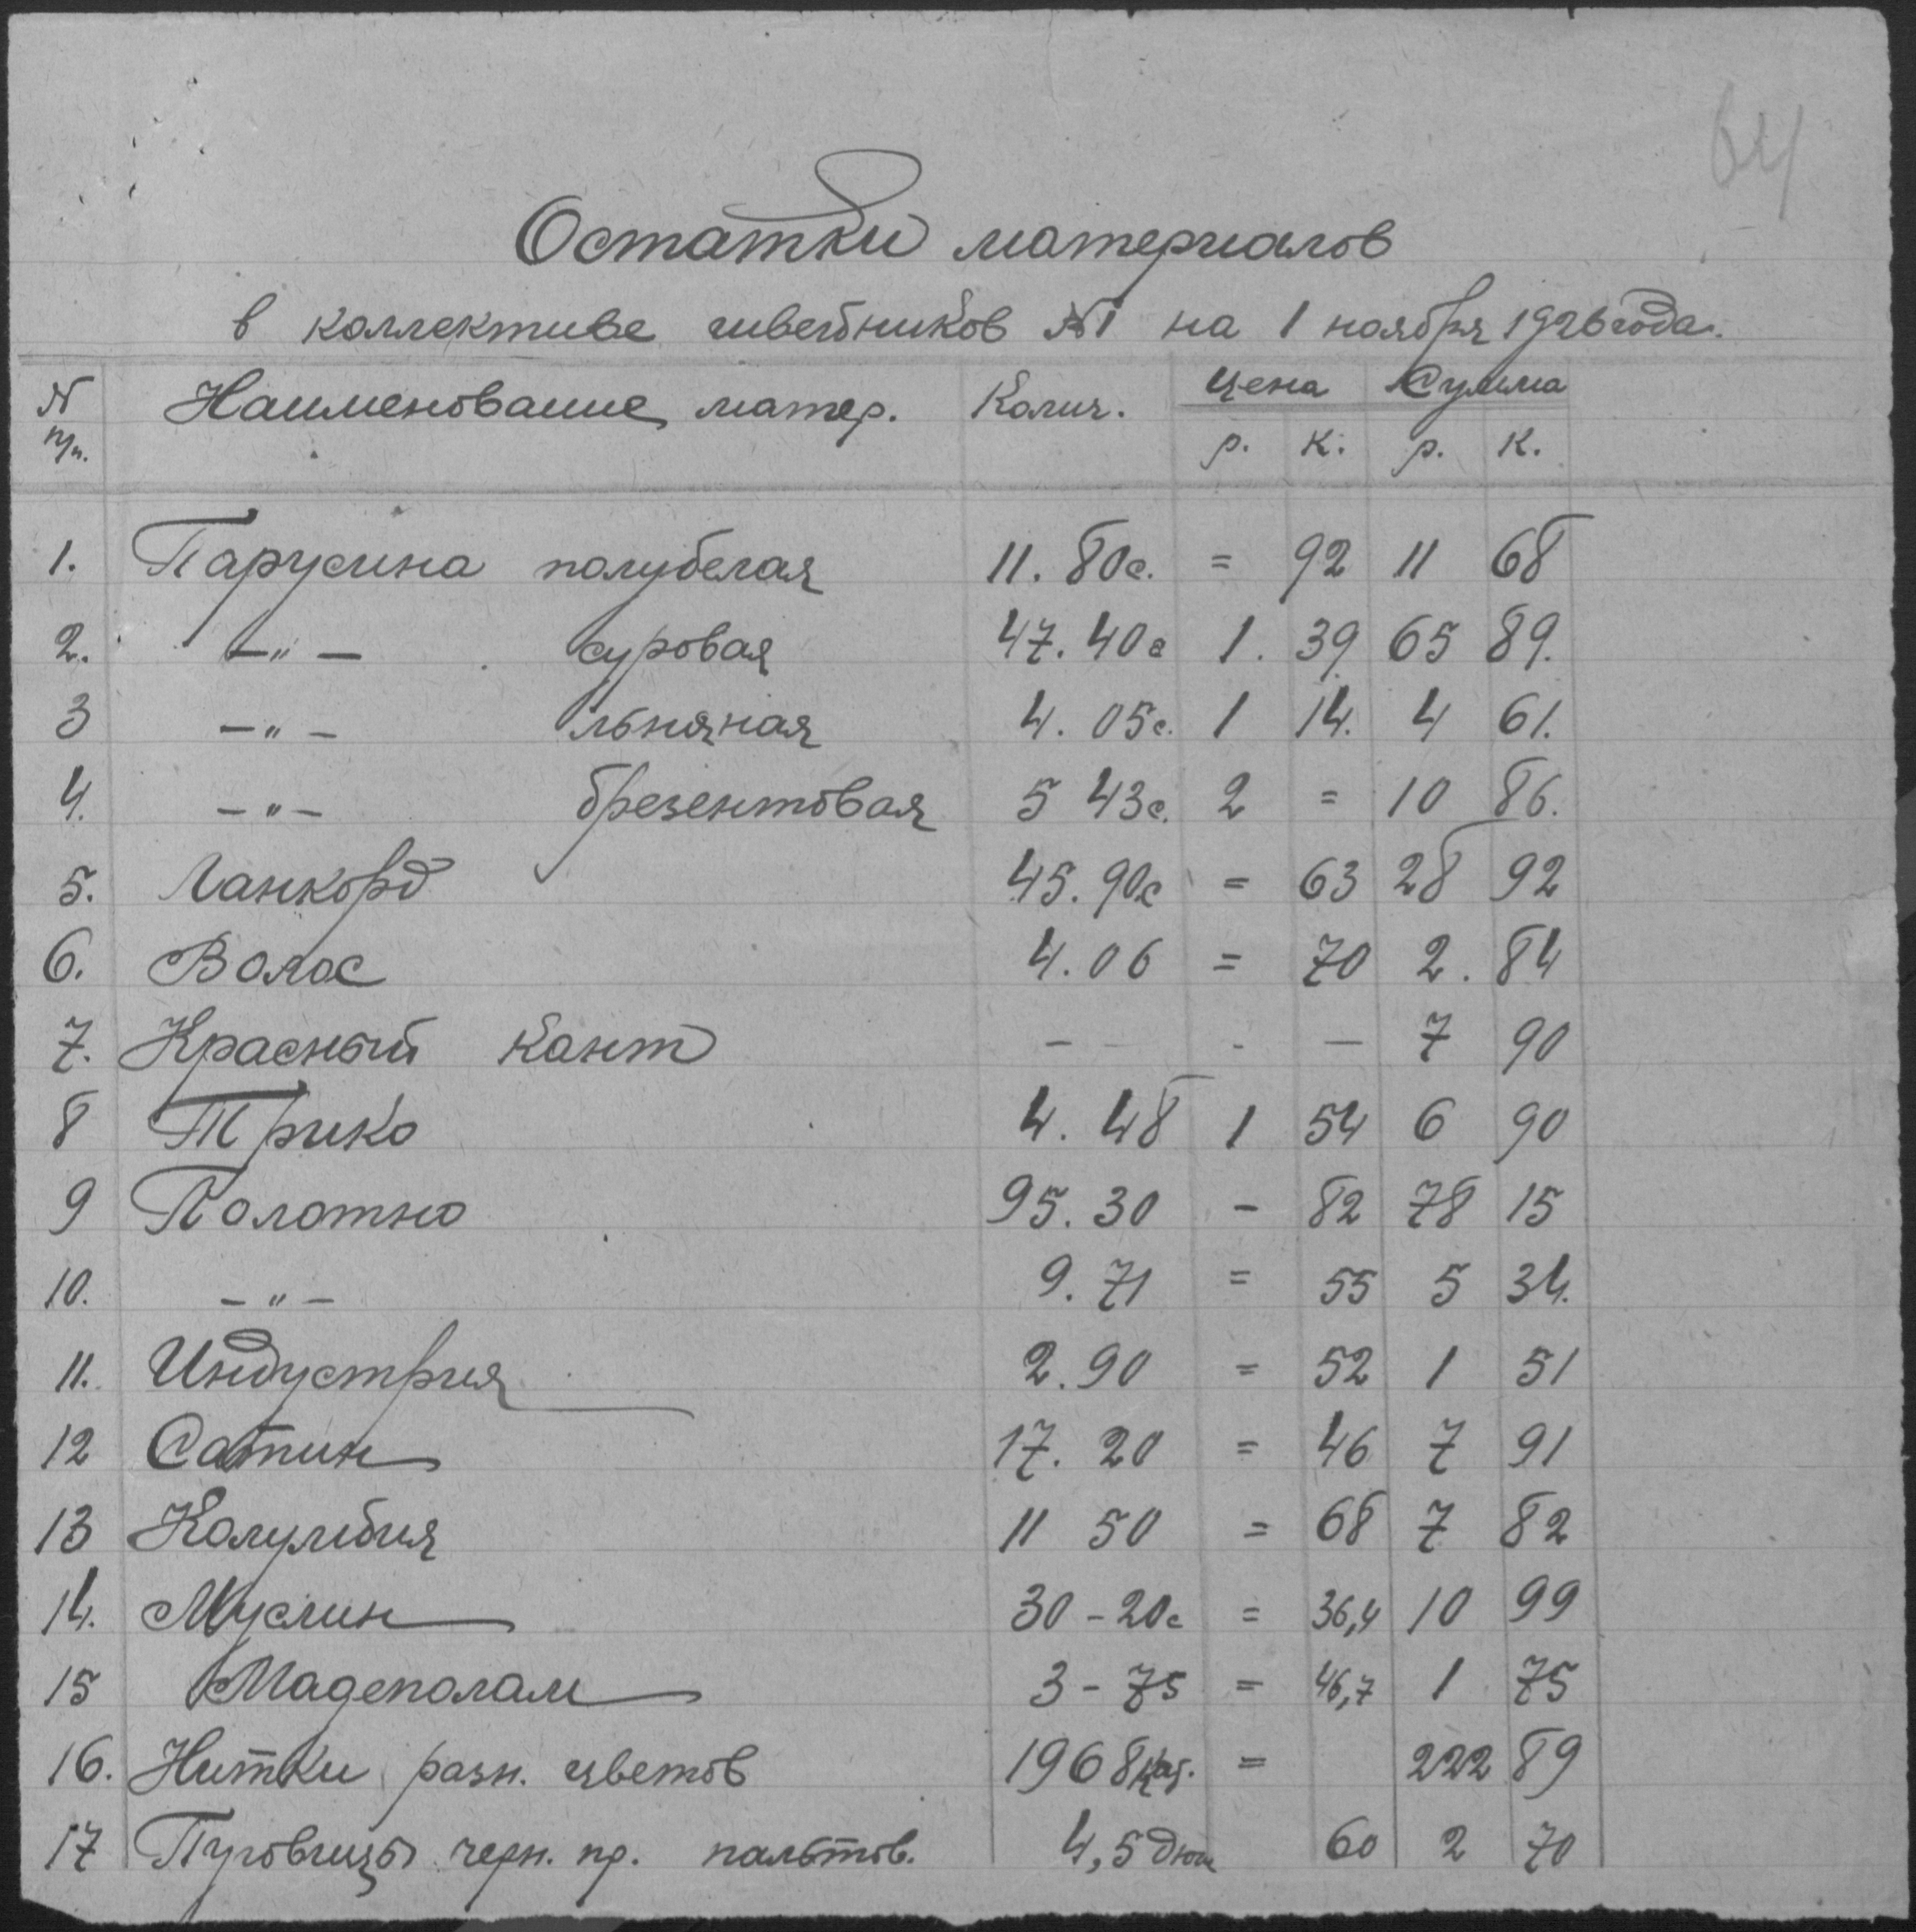 64
Остатки материалов
в коллективе швейников №1 на 1 ноября 1926 года.
N п/п. Наименование матер. Колич. Цена Сумма
р. к. р. к.
1. Парусина полубелая 11.80с. = 92 11 68
2. -"- суровая 47.40с 1. 39 65 89.
3 -"- льняная 4.05с. 1 14. 4 61.
4. -"- брезентовая 5 43с. 2 = 10 86.
5. Ланкорд 45.90с = 63 28 92
6. Волос 4.06 = 70 2. 84
7. Красный Кант - - - 7 90
8 Трико 4.48 1 54 6 90
9 Полотно 95.30 - 82 78 15
10. -"- 9.71 = 55 5 34.
11. Индустрия 2.90 = 52 1 51
12 Сатин 17.20 = 46 7 91
13 Колумбия 11 50 = 68 7 82
14. Муслин 30-20с = 36,4 10 99
15 Мадеполам 3-75 = 46,7 1 75
16. Нитки разн. цветов 1968 = 222 89
17 Пуговицы черн. пр. пальтов. 4,5 дюж 60 2 70